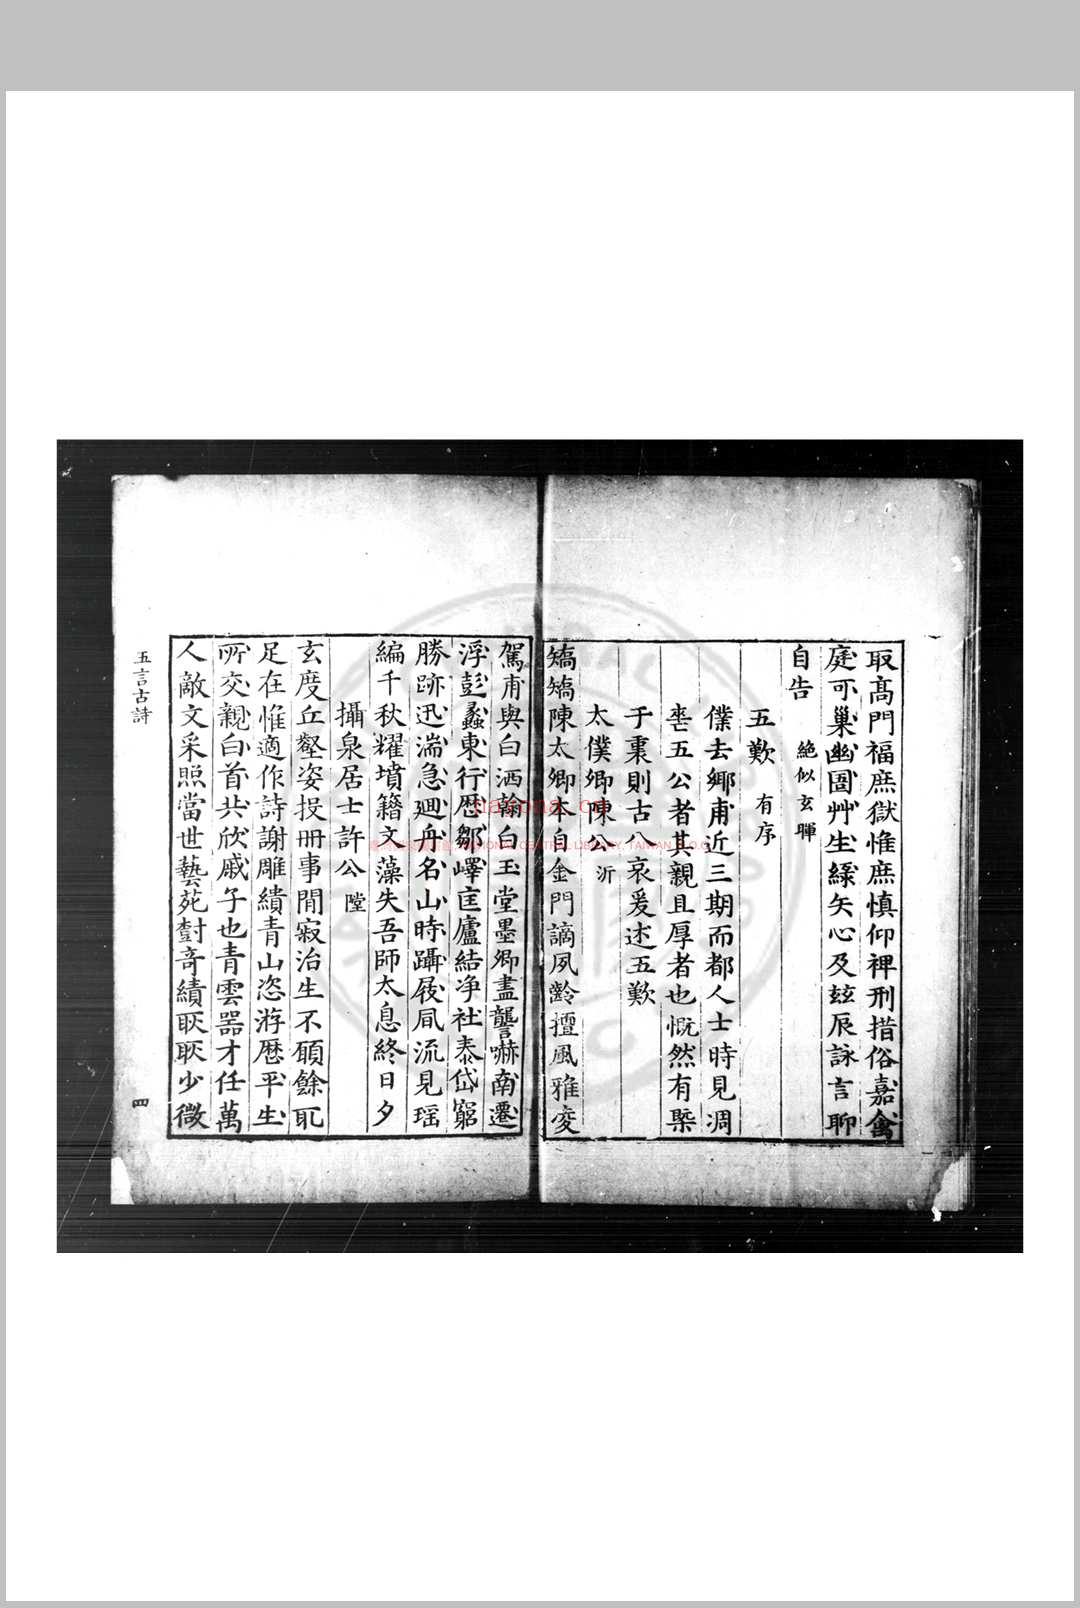 取髙門福庶獄惟庶慎仰裨刑措俗嘉禽
庭可巢幽圄艸生綠矢心及玆辰詠言聊
自告 絶似玄暉
五歎 有序
僕去鄉甫近三期而都人士時見凋
喪五公者其親且厚者也慨然有槩
于衷則古八哀爰述五歎
太僕卿陳公 沂
矯矯陳太卿本自金門謫夙齡擅風雅夋
駕甫與白洒翰白玉堂墨卿盡讋嚇南遷
浮彭蠡東行歷鄒嶧匡廬結净社泰岱窮
勝跡迅湍急迴舟名山時躡屐凮流見瑶
編千秋耀墳籍文藻失吾師太息終日夕
攝泉居士許公 隚
玄度丘壑姿投冊事閒寂治生不願餘耴
足在惟適作詩謝雕繢青山恣游歷平生
所交親白首共欣戚子也青雲器才任萬
人敵文采照當世藝苑樹竒績聅聅少微
五言古詩
四
nagona.cn
NATIONAL CENTRAL LIBRARY, TAIWAN, R.O.C